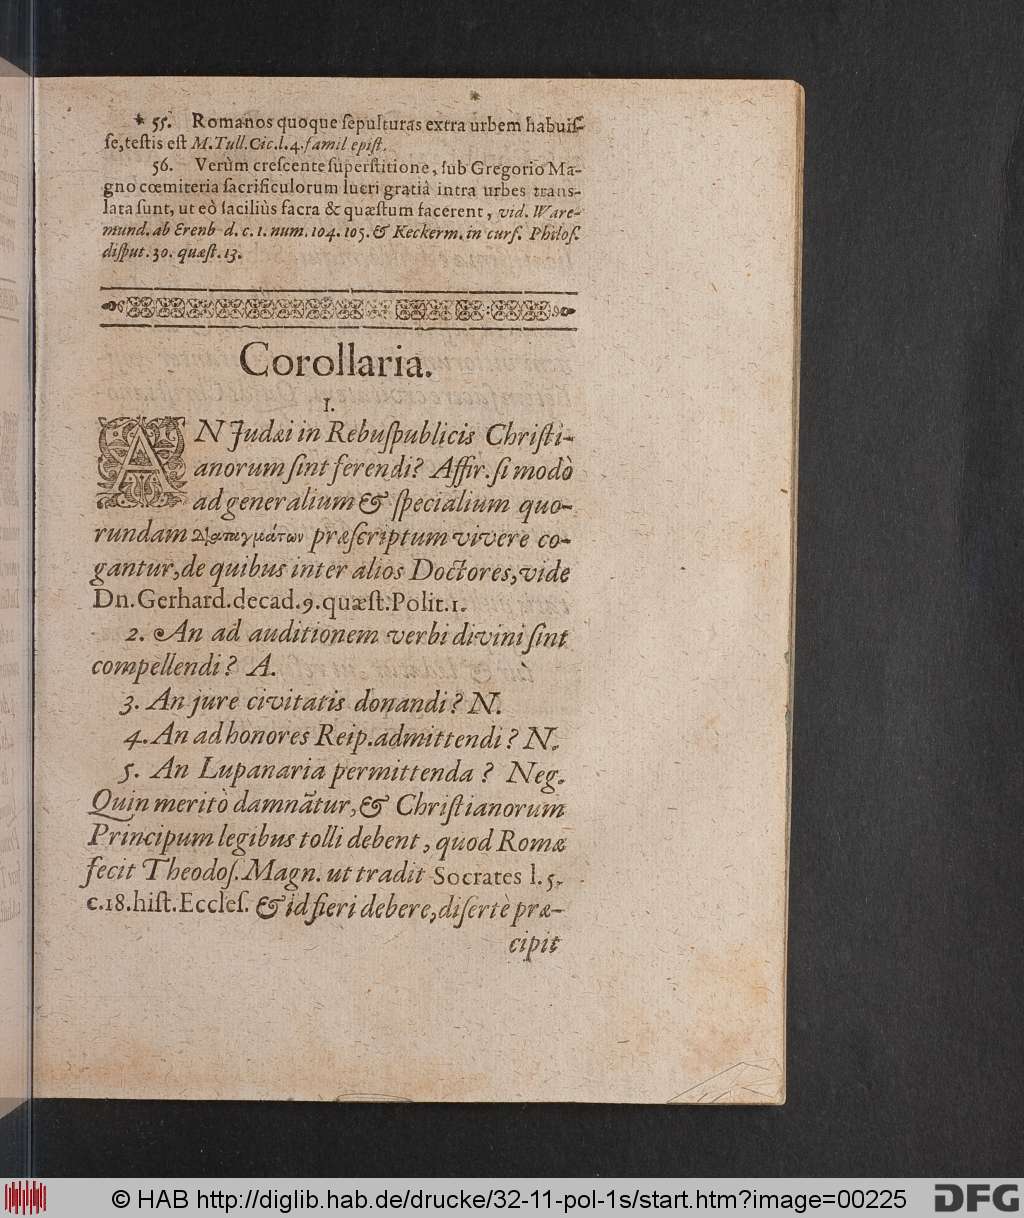 * 55. Romanos quoque ſepulturas extra urbem habuiſ-
ſe, teſtis eſt M. Tull. Cic. l. 4. famil epiſt.
56. Verùm creſcente ſuperſtitione, ſub Gregorio Ma-
gno cœmiteria ſacrificulorum lucri gratiâ intra urbes trans-
lata ſunt, ut eò faciliùs ſacra & quæſtum facerent, vid. Ware-
mund. ab Erenb d. c. 1. num. 104. 105. & Keckerm. in curſ. Philoſ.
diſput. 30. quæſt. 13.
Corollaria.
I.
AN Judæi in Rebuſpublicis Chriſti-
anorum ſint ferendi? Affir. ſi modò
ad generalium & ſpecialium quo-
rundam διαταγμάτων præſcriptum vivere co-
gantur, de quibus inter alios Doctores, vide
Dn. Gerhard. decad. 9. quæſt. Polit. 1.
2. An ad auditionem verbi divini ſint
compellendi? A.
3. An jure civitatis donandi? N.
4. An ad honores Reip. admittendi? N.
5. An Lupanaria permittenda? Neg.
Quin meritò damnãtur, & Chriſtianorum
Principum legibus tolli debent, quod Romæ
fecit Theodoſ. Magn. ut tradit Socrates l. 5.
c. 18. hiſt. Eccleſ. & id fieri debere, diſertè præ-
cipit
© HAB http://diglib.hab.de/drucke/32-11-pol-1s/start.htm?image=00225
DFG